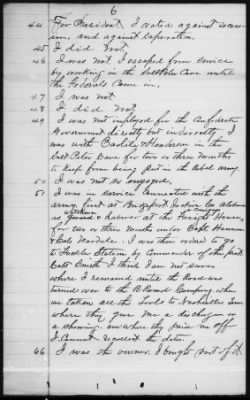 6
44 For President, I voted against secess-
ion, and against Seperation.
45 I did not.
46 I was not. I escaped from service
by working in the Saltpetre Cave until
the Federals Came in.
47 I was not
48 I did not
49 I was not employed for the Confederate
Government directly but indirectly. I
was with Barkley & Henderson in the
Salt Peter Cave for two or three months
to keep from being put in the rebel army.
50 I was not so engaged.
51 I was in service connected with the
army, first at Bridgeport
as Guard & Laborer at the Freight House,
for two or three months under Capt
& Capt. I was then moved to go
to Station by Commander of the post
Capt Smith I think I am not sure
where I remained until the Road was
turned over to the R Road Company, when
we taken all the tools to Nashville Tenn
where they give me a discharge or
a showing somewhere they paid me off
I Cannot recollect the date.
66 I was the owner. I bought part of it